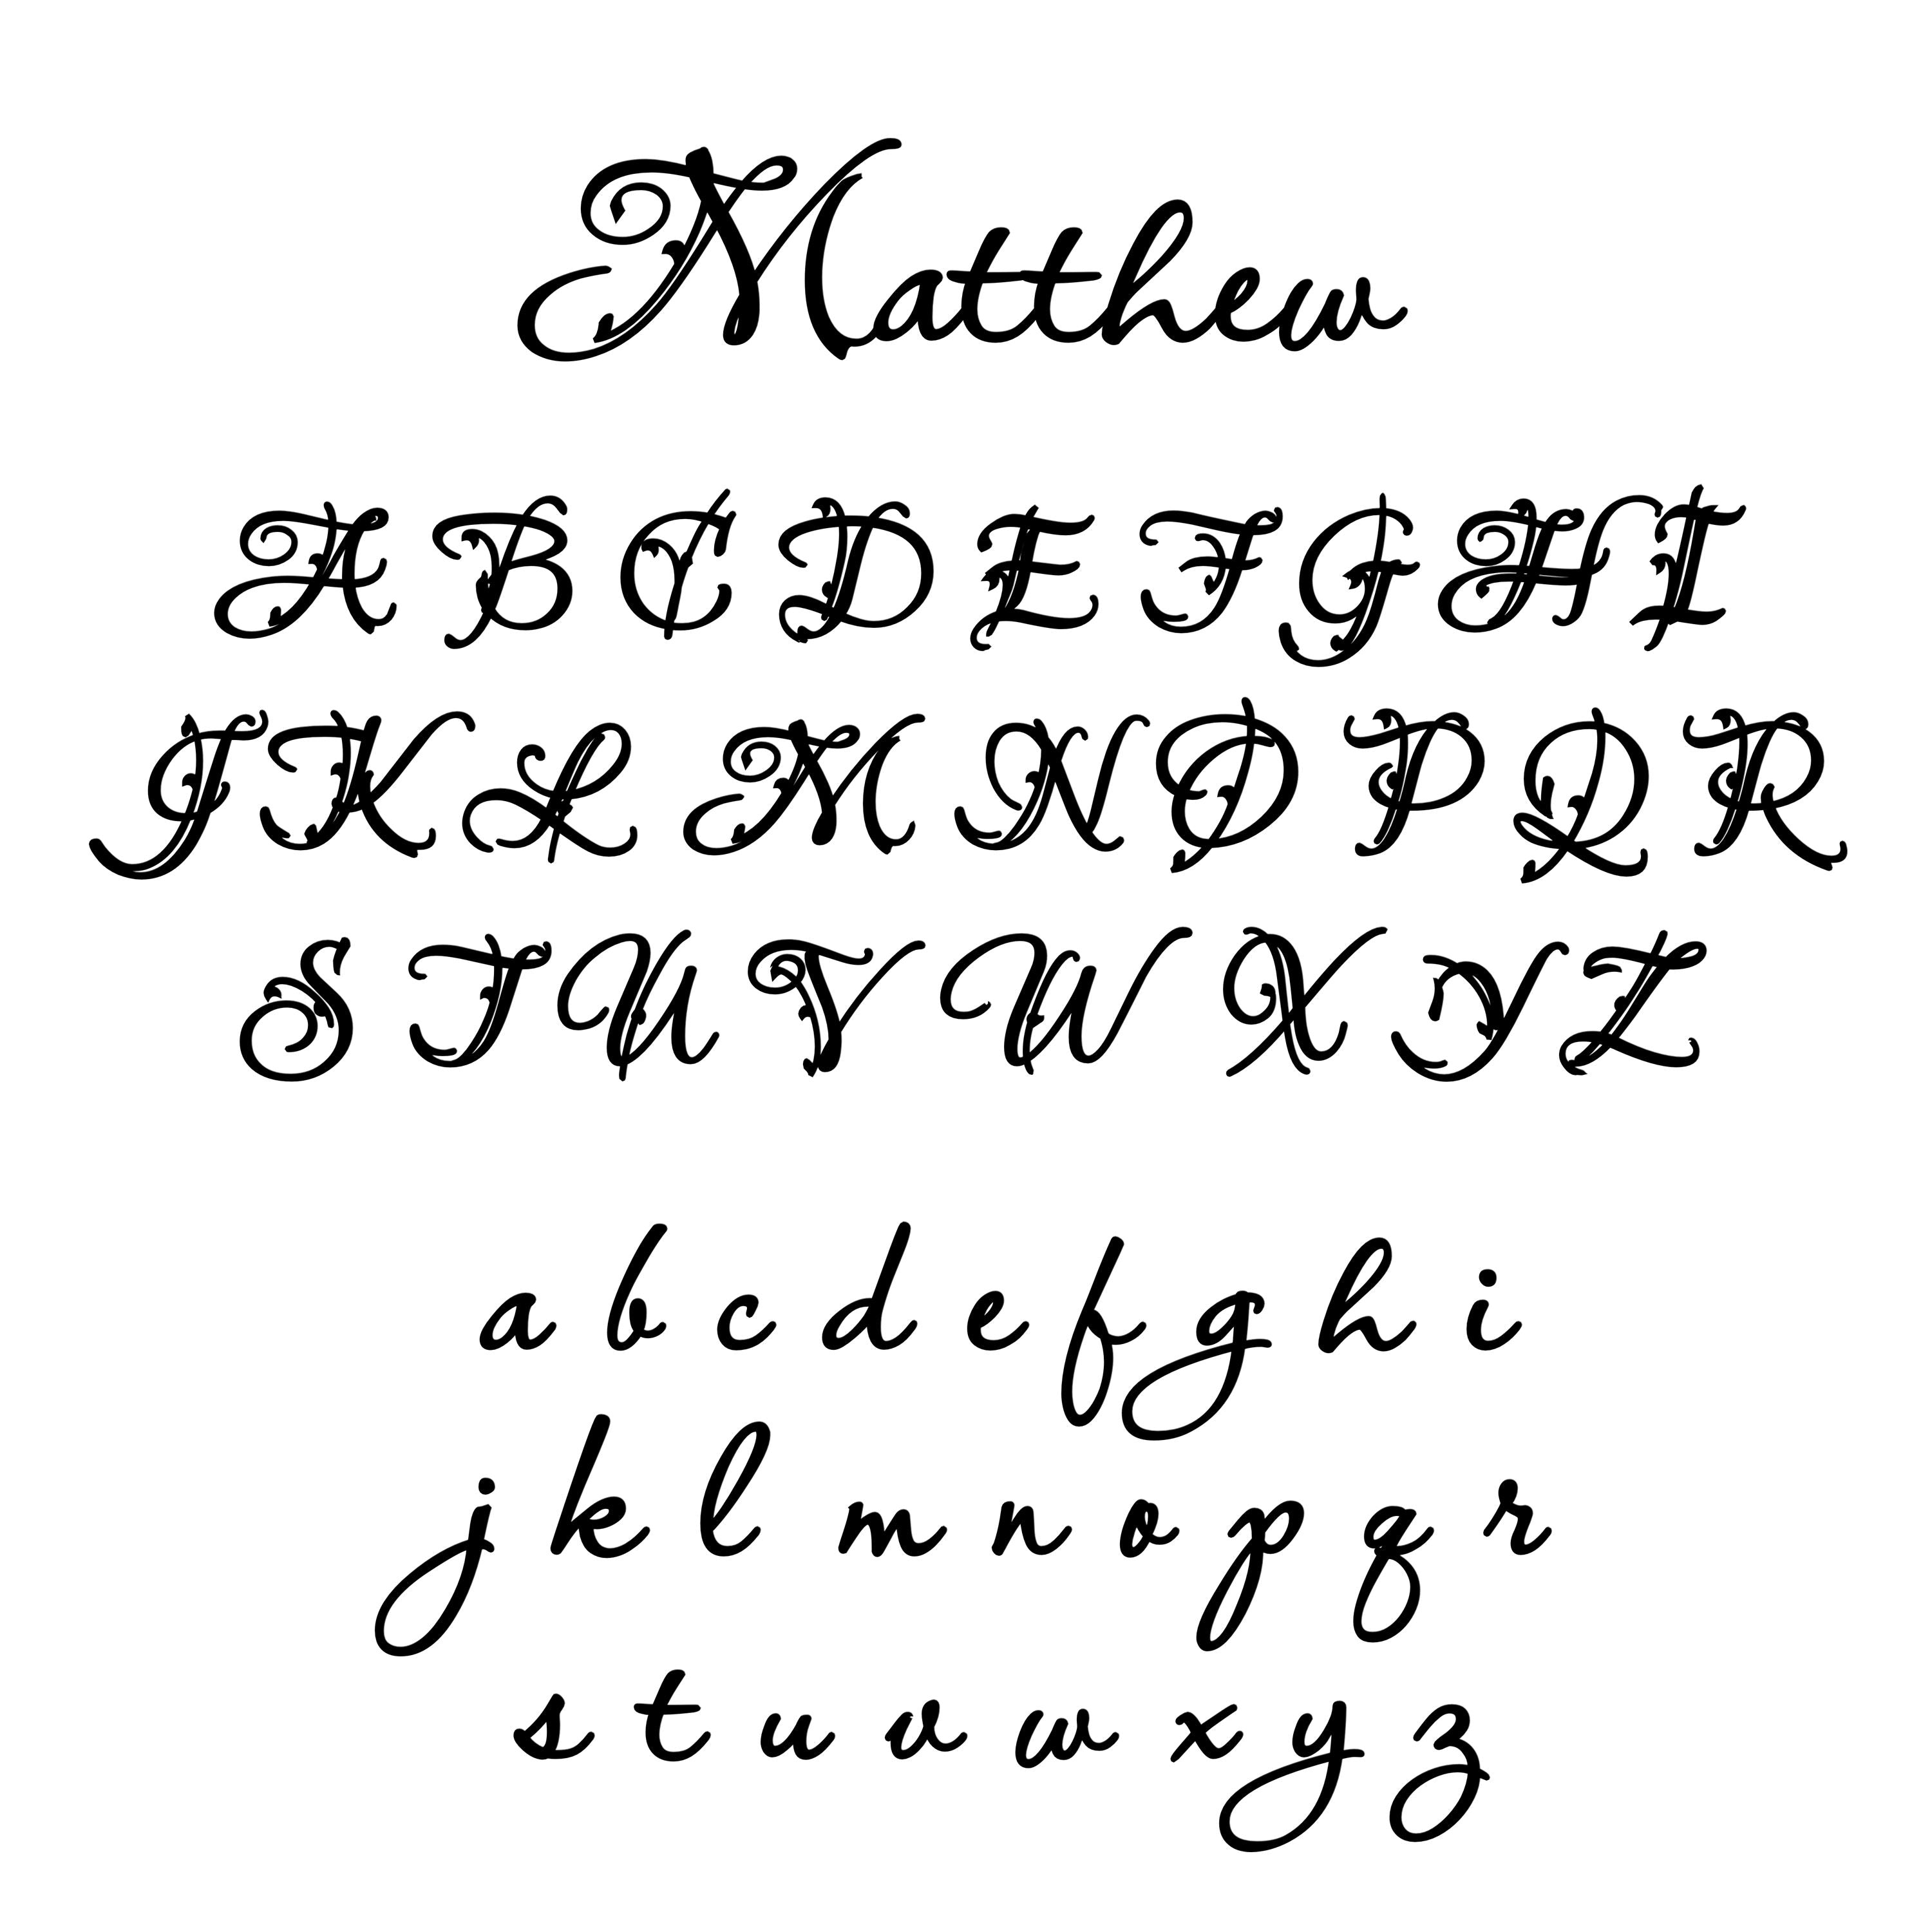 Matthew
A B C D E F G H I
J K L M N O P Q R
S T U V W X Y Z
a b c d e f g h i
j k l m n o p q r
s t u v w x y z